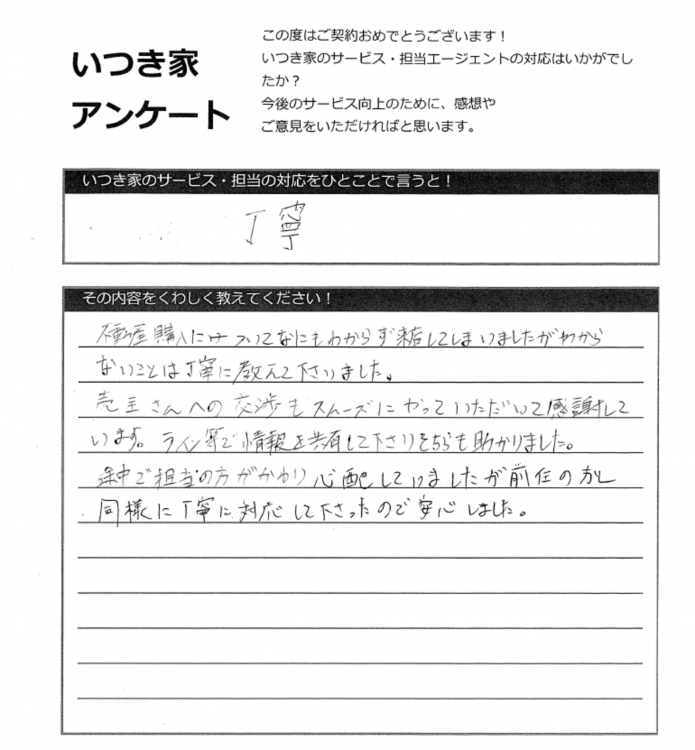 いつき家
アンケート
この度はご契約おめでとうございます！
いつき家のサービス・担当エージェントの対応はいかがでし
たか？
今後のサービス向上のために、感想や
ご意見をいただければと思います。
いつき家のサービス・担当の対応をひとことで言うと！
丁寧
その内容をくわしく教えてください！
不動産購入についてなにもわからず来店してしまいましたがわから
ないことは丁寧に教えて下さいました。
売主さんへの交渉もスムーズにやっていただいて感謝して
います。ライン等で情報を共有して下さりそちらも助かりました。
途中で担当の方がかわり心配していましたが前任の方と
同様に丁寧に対応して下さったので安心しました。